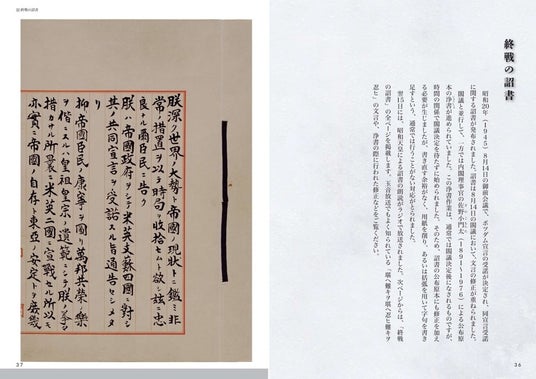 終戦の詔書
昭和20年（1945）8月14日の御前会議で、ポツダム宣言の受諾が決定され、同宣言受諾
に関する詔書が発布されました。詔書は8月14日の閣議において、文言の修正が重ねられました。
閣議と並行して、一方では内閣理事官の佐野小門太（1891-1976）による公布原
本の浄書が進められました。この浄書作業は、通常では閣議決定後になされるものですが、
時間の関係で閣議決定を待たずに始められました。そのため、詔書の公布原本にも修正を加え
る必要が生じましたが、書き直す余裕がなく、用紙を削り、あるいは括弧を用いて字句を書き
足すという、通常では行うことがない対応がとられました。
翌15日には、昭和天皇による詔書の朗読がラジオで放送されました。次ページからは、「終戦
の詔書」の全ページを掲載します。玉音放送でもよく知られている「堪ヘ難キヲ堪ヘ忍ヒ難キヲ
忍ヒ」の文言や、浄書の際に行われた修正などをご覧ください。
36
朕深ク世界ノ大勢ト帝國ノ現狀トニ鑑ミ非
常ノ措置ヲ以テ時局ヲ收拾セムト欲シ茲ニ忠
良ナル爾臣民ニ告ク
朕ハ帝國政府ヲシテ米英支蘇四國ニ對シ
其ノ共同宣言ヲ受諾スル旨通告セシメタ
リ
抑〻帝國臣民ノ康寧ヲ圖リ萬邦共榮ノ樂
ヲ偕ニスルハ皇祖皇宗ノ遺範ニシテ朕ノ拳々
措カサル所曩ニ米英二國ニ宣戰セル所以モ
亦實ニ帝國ノ自存ト東亞ノ安定トヲ庶幾
37